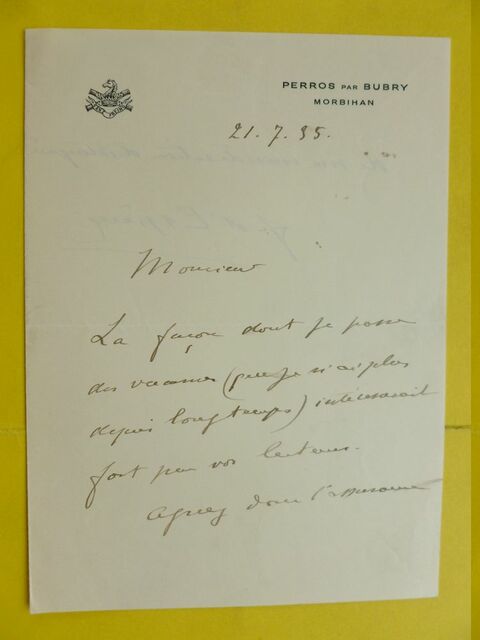 PERROS PAR BUBRY
MORBIHAN
21.7.35.
Monsieur
La façon dont je passe
des vacances (que je n'ai plus
depuis longtemps) intéresserait
fort peu vos lecteurs.
Agréez donc l'assurance